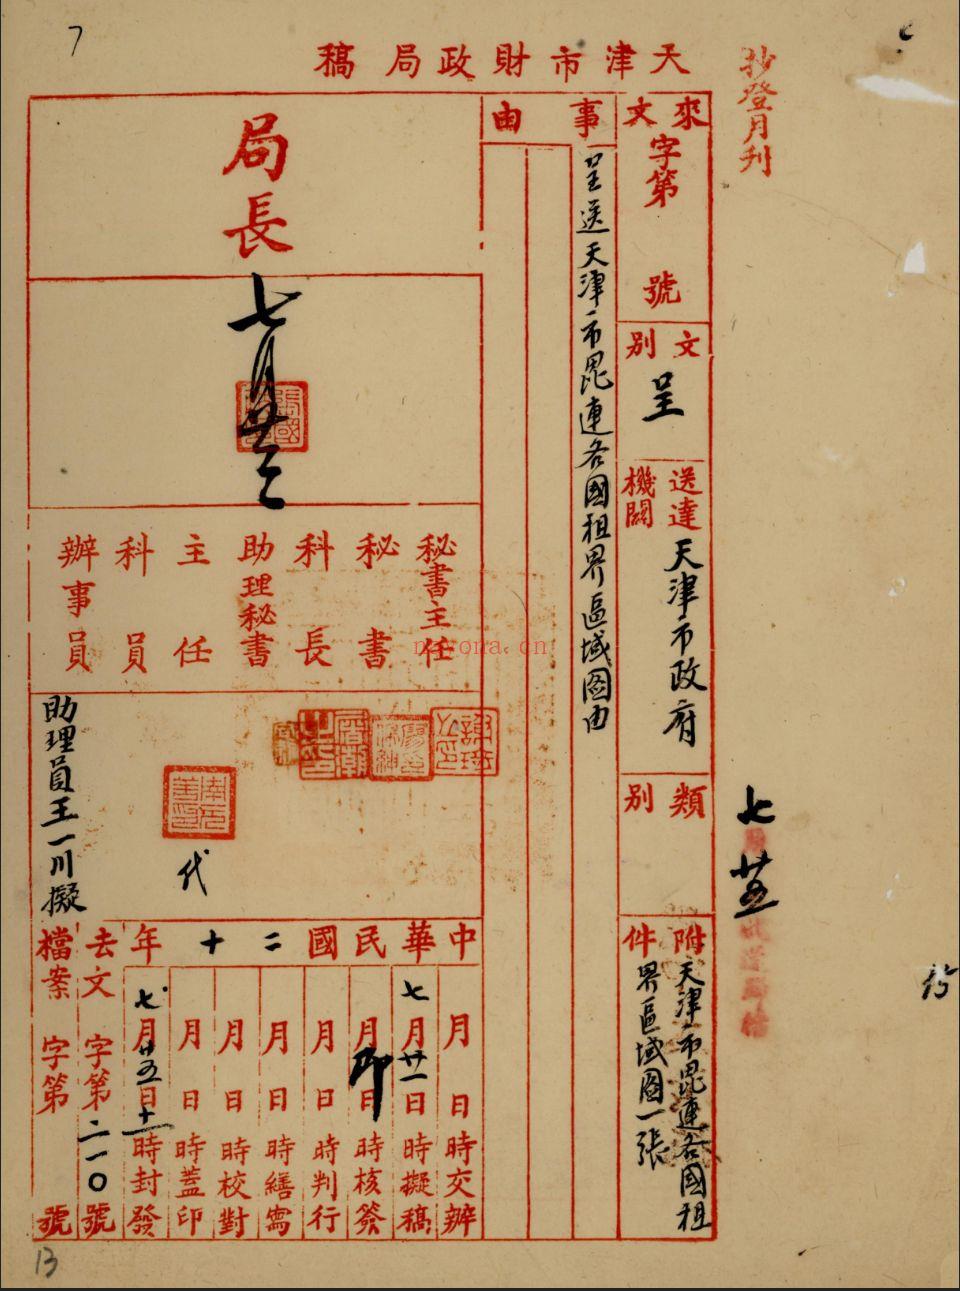 天津市財政局稿
抄登月刊
來文
字第
號
文別
呈
送達
機關
天津市政府
類別
附件
天津市毘連各國租
界區域圖一張
事由
呈送天津市毘連各國租界區域圖由
局長
七月廿二
秘書主任
秘書
科長
助理秘書
主任
科員
辦事員
代
助理員王一川擬
中華民國二十年
月日時交辦
七月廿一日時擬稿
月日時核簽
月日時判行
月日時繕寫
月日時校對
月日時蓋印
七月廿五日十一時封發
去文字第二一〇號
檔案字第號
七
廿五
7
13
nayona.cn